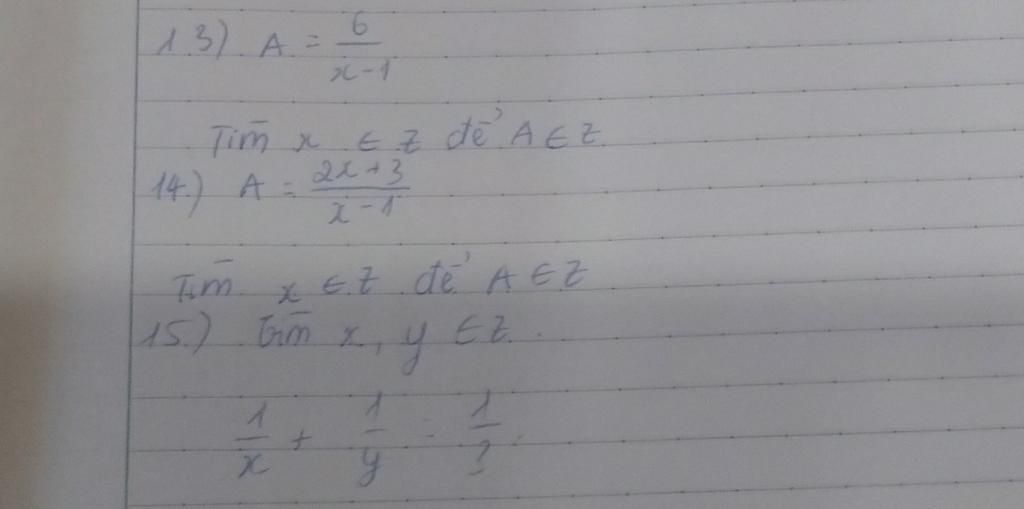 13) A = 6/(x-1)
Tìm x ∈ Z để A ∈ Z.
14.) A = (2x+3)/(x-1)
Tìm x ∈ Z để A ∈ Z
15.) Tìm x, y ∈ Z.
1/x + 1/y = 1/3.